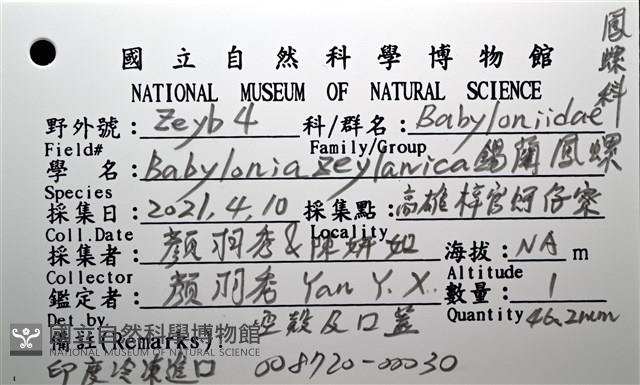 鳳螺科
國立自然科學博物館
NATIONAL MUSEUM OF NATURAL SCIENCE
野外號：Zeyb 4 科/群名：Babyloniidae
Field# Family/Group
學 名：Babylonia zeylanica 錫蘭鳳螺
Species
採集日：2021,4,10 採集點：高雄梓官蚵仔寮
Coll.Date Locality
採集者：顏羽秀&陳妍如 海拔：NA m
Collector Altitude
鑑定者：顏羽秀 Yan Y. X. 數量：1
Det by Quantity 46.2mm
備註(Remarks): 空殼及口蓋
國立自然科學博物館
NATIONAL MUSEUM OF NATURAL SCIENCE
印度冷凍進口 008720-00030